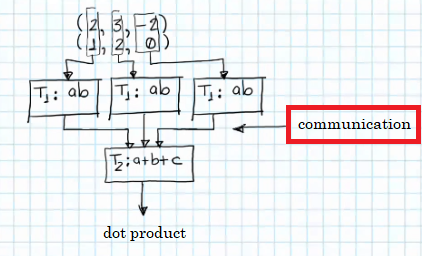 (2, 3, -2)
(1, 2, 0)
T1: ab
T1: ab
T1: ab
communication
T2: a+b+c
dot product